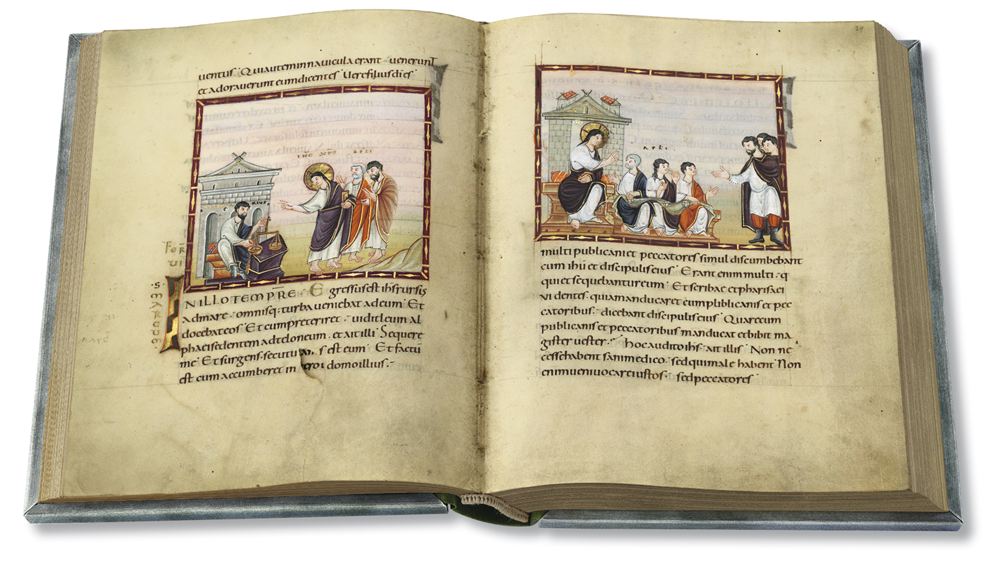 uentus · Qui autem in nauicula erant · uenerunt
et adorauerunt eum dicentes · Vere filius di es
NILLO TEMPRE · Egressus est ihs rursus
ad mare · omnisq; turba ueniebat ad eum · Et
docebat eos · Et cum preteriret · uidit leuin al
phaei sedentem ad teloneum · et ait illi · Sequere
me · Et surgens secutus est eum · Et factū
est cum accumberet in domo illius ·
multi publicani et peccatores simul discumbebant
cum ihu et discipulis eius · Erant enim multi · q
ui et sequebantur eum · Et scribae et pharisaei
uidentes · quia manducaret cum publicanis et pec
catoribus · dicebant discipulis eius · Quare cum
publicanis et peccatoribus manducat et bibit ma
gister uester · hoc audito ihs · ait illis · Non ne
cesse habent sani medico · sed qui male habent Non
enim ueni uocare iustos · sed peccatores ·